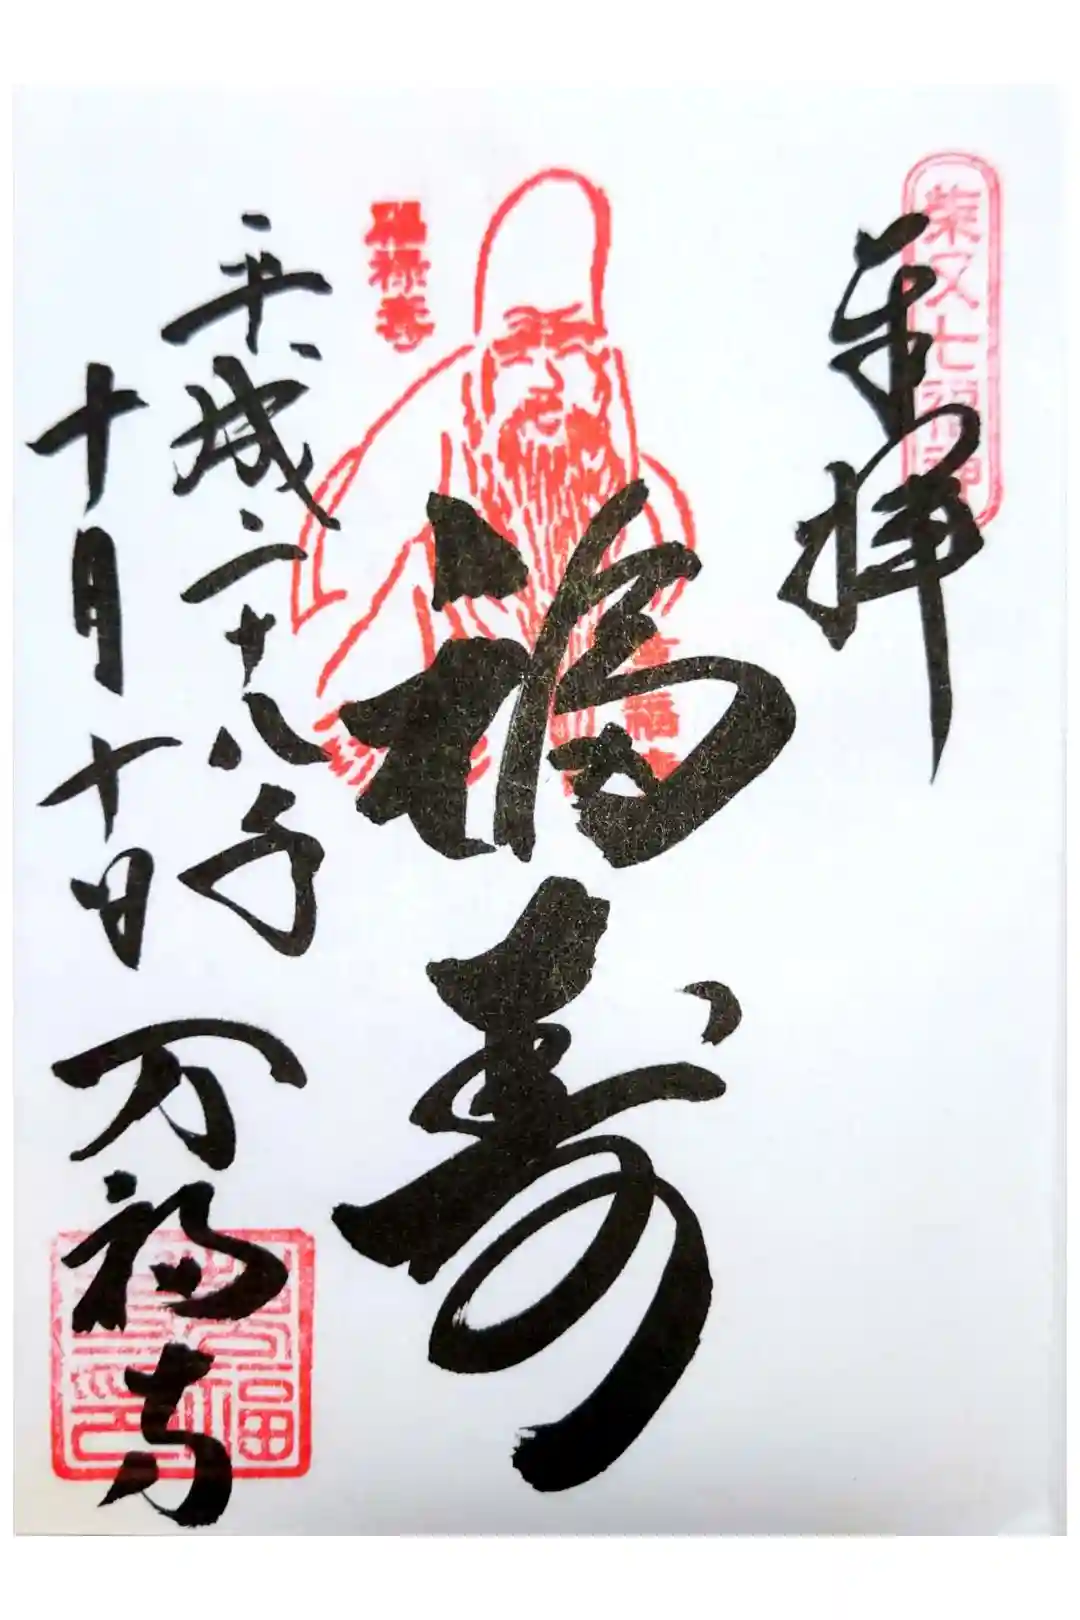 柴又七福神
奉拝
福寿
福禄寿
平成二十八年
十月十日
万福寺